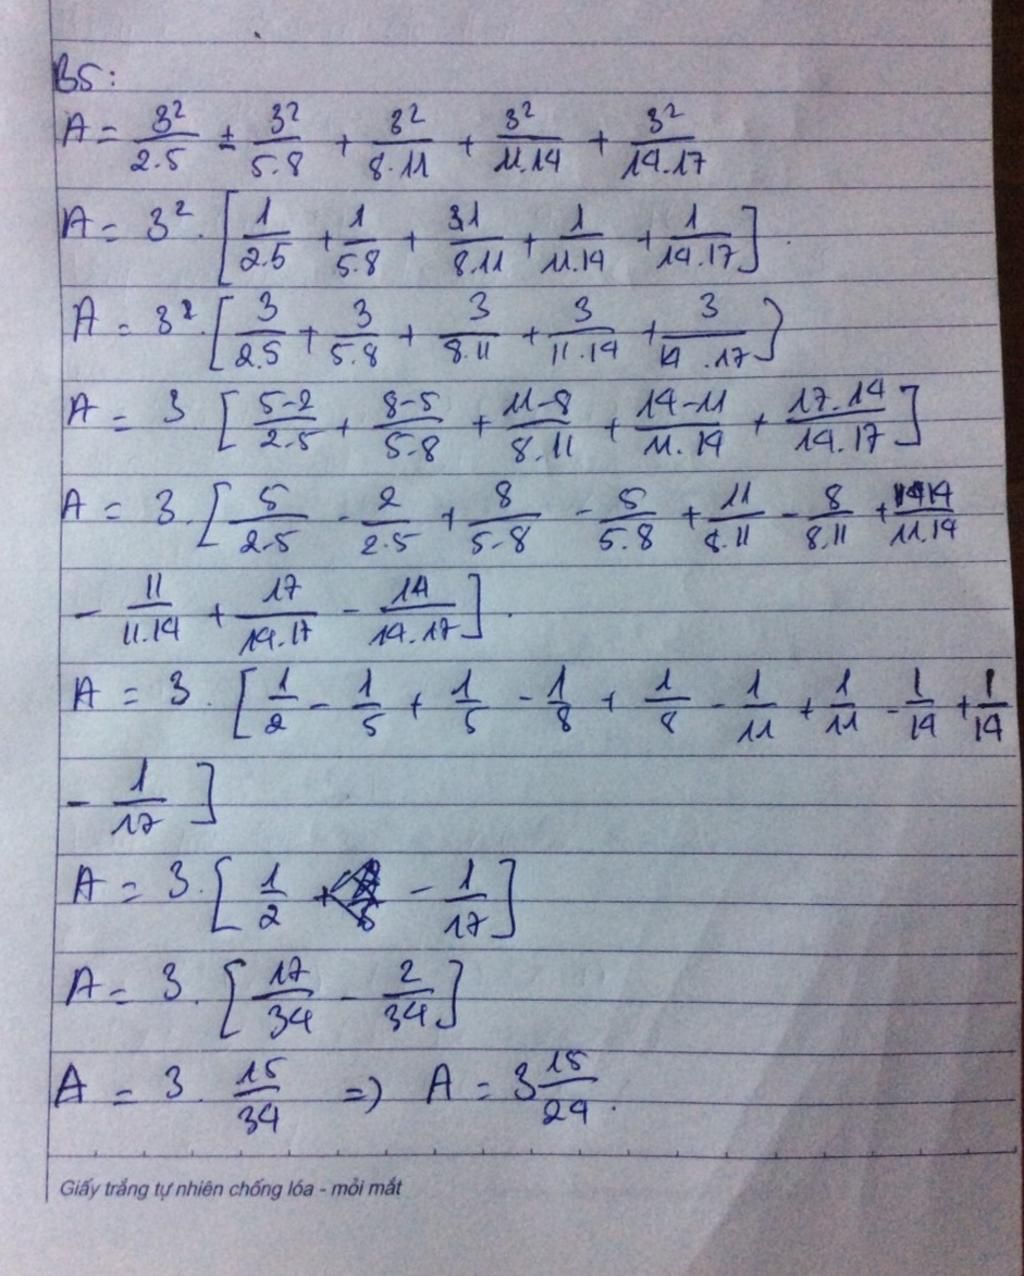 B5:
A = 3²/2.5 + 3²/5.8 + 3²/8.11 + 3²/11.14 + 3²/14.17
A = 3². [1/2.5 + 1/5.8 + 31/8.11 + 1/11.14 + 1/14.17].
A = 3². [3/2.5 + 3/5.8 + 3/8.11 + 3/11.14 + 3/14.17]
A = 3 [5-2/2.5 + 8-5/5.8 + 11-8/8.11 + 14-11/11.14 + 17.14/14.17]
A = 3. [5/2.5 - 2/2.5 + 8/5.8 - 5/5.8 + 11/8.11 - 8/8.11 + 14/11.14
- 11/11.14 + 17/14.17 - 14/14.17].
A = 3. [1/2 - 1/5 + 1/5 - 1/8 + 1/8 - 1/11 + 1/11 - 1/14 + 1/14
- 1/17]
A = 3. [1/2 - 1/17]
A = 3. [17/34 - 2/34]
A = 3. 15/34 => A = 3 15/24.
Giấy trắng tự nhiên chống lóa - mỏi mắt